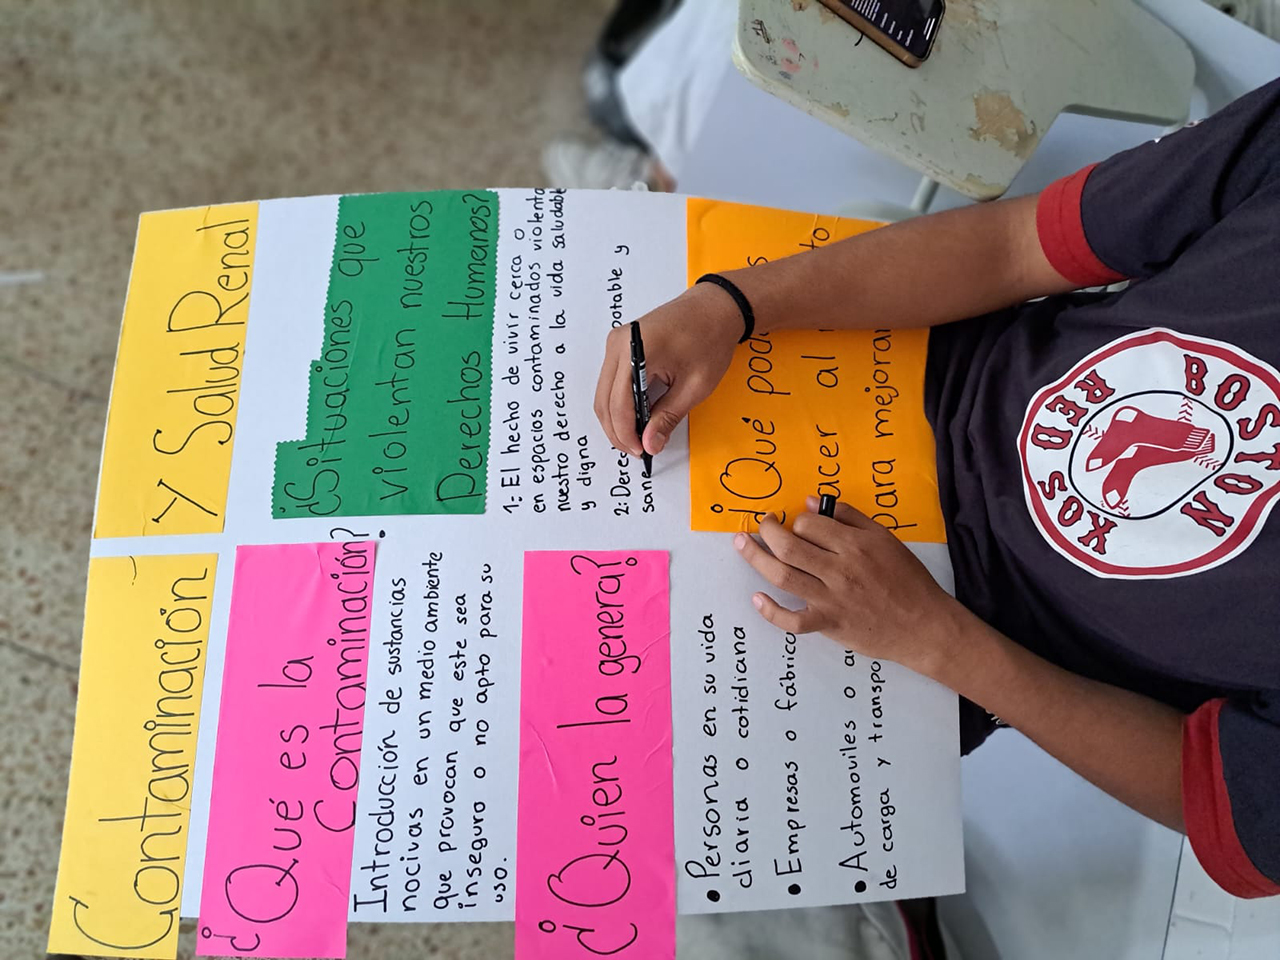 Contaminación
y Salud Renal
¿Qué es la
Contaminación?
Introducción de sustancias
nocivas en un medio ambiente
que provocan que este sea
inseguro o no apto para su
uso.
¿Quien la genera?
• Personas en su vida
diaria o cotidiana
• Empresas o fábrica
• Automoviles o
de carga y transpo
¿Situaciones que
violentan nuestros
Derechos Humanos?
1: El hecho de vivir cerca o
en espacios contaminados violenta
nuestro derecho a la vida saludable
y digna
2: Derec potable y
sane
¿Qué pod s
acer al to
para mejorar
BOSTON
RED SOX